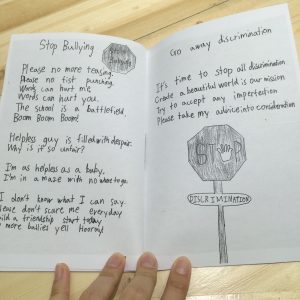 Stop Bullying
Please no more teasing.
Please no fist punching.
Words can hurt me
Words can hurt you.
The school is a battlefield
Boom Boom Boom!
Helpless guy is filled with despair.
Why is it so unfair?
I'm as helpless as a baby.
I'm in a maze with no where to go.
I don't know what I can say.
Please don't scare me everyday
Build a friendship start today
No more bullies yell Hooray!
Go away discrimination
It's time to stop all discrimination
Create a beautiful world is our mission
Try to accept any imperfection
Please take my advice into consideration
STOP
DISCRIMINATION